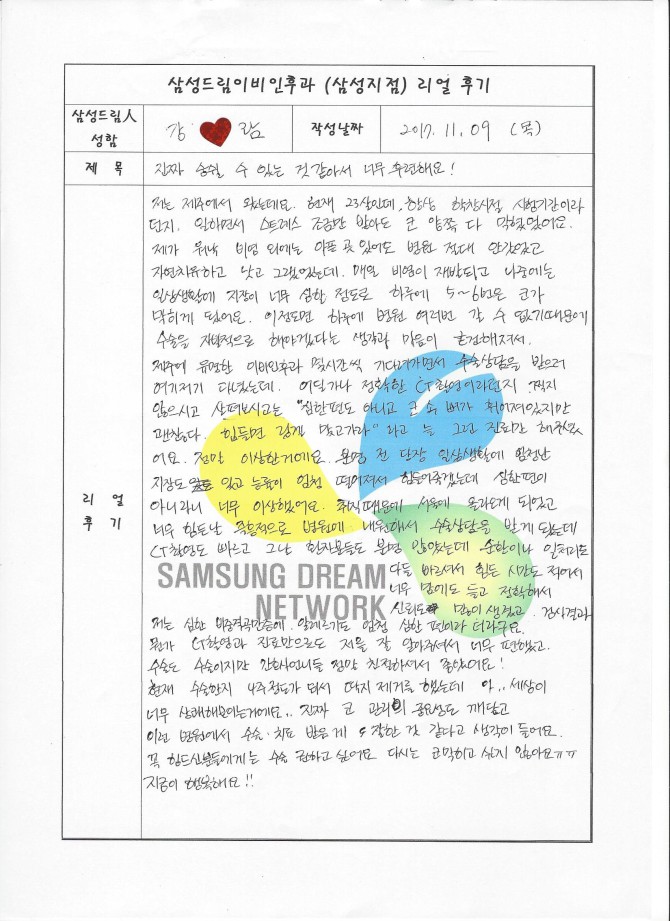 삼성드림이비인후과 (삼성지점) 리얼 후기
삼성드림人 성함
강 ♥ 림
작성날짜
2017. 11. 09 (목)
제 목
진짜 숨쉴 수 있는 것 같아서 너무 후련해요!
리 얼
후 기
저는 제주에서 왔는데요. 현재 23살인데, 항상 학창시절 시험기간이라
던지. 일하면서 스트레스 조금만 받아도 코 양쪽 다 막혔었어요.
제가 워낙 비염 외에는 아픈 곳 있어도 병원 절대 안갔었고
자연치유하고 낫고 그랬었는데. 매일 비염이 재발되고 나중에는
일상생활에 지장이 너무 심한 정도로 하루에 5~6번은 코가
막히게 됐어요. 이정도면 하루에 병원 여러번 갈 수 없기때문에
수술을 자발적으로 해야겠다는 생각과 마음이 굳건해져서.
제주에 유명한 이비인후과 몇시간씩 기다려가면서 수술상담을 받으러
여기저기 다녔는데. 어딜가나 정확한 CT촬영이라던지 찍지
않으시고 살펴보시고는 "심한편도 아니고 코 속 뼈가 휘어져있지만
괜찮다. 힘들면 링겔 맞고가라" 라고 늘 그런 진료만 해주셨
어요. 정말 이상한거에요. 분명 전 당장 일상생활에 엄청난
지장도 있고 능률이 엄청 떨어져서 힘들어죽겠는데 심한편이
아니라니 너무 이상했어요. 취직때문에 서울에 올라오게 되었고
너무 힘든날 즉흥적으로 병원에 내원해서 수술상담을 받게 됐는데
CT촬영도 빠르고 그날 환자분들도 분명 많았는데 순환이나 일처리도
다들 빠르셔서 힘든 시간도 적어서
너무 맘에도 들고 정확해서
신뢰도 많이 생겼고. 검사결과
저는 심한 비중격만곡증에. 알레르기도 엄청 심한 편이라 더라구요.
뭔가 CT촬영과 진료만으로도 저를 잘 알아주셔서 너무 편했고.
수술도 수술이지만 간호사언니들 정말 친절하셔서 좋았어요!
현재 수술한지 4주정도가 되서 딱지 제거를 했는데 아.. 세상이
너무 상쾌해보이는거에요.. 진짜 코 관리의 중요성도 깨닫고
이런 병원에서 수술·치료 받은게 잘한 것 같다고 생각이 들어요.
꼭 힘드신분들에게는 수술 권하고 싶어요 다시는 코막히고 싶지 않아요ㅠㅠ
지금이 행복해요!!
SAMSUNG DREAM
NETWORK